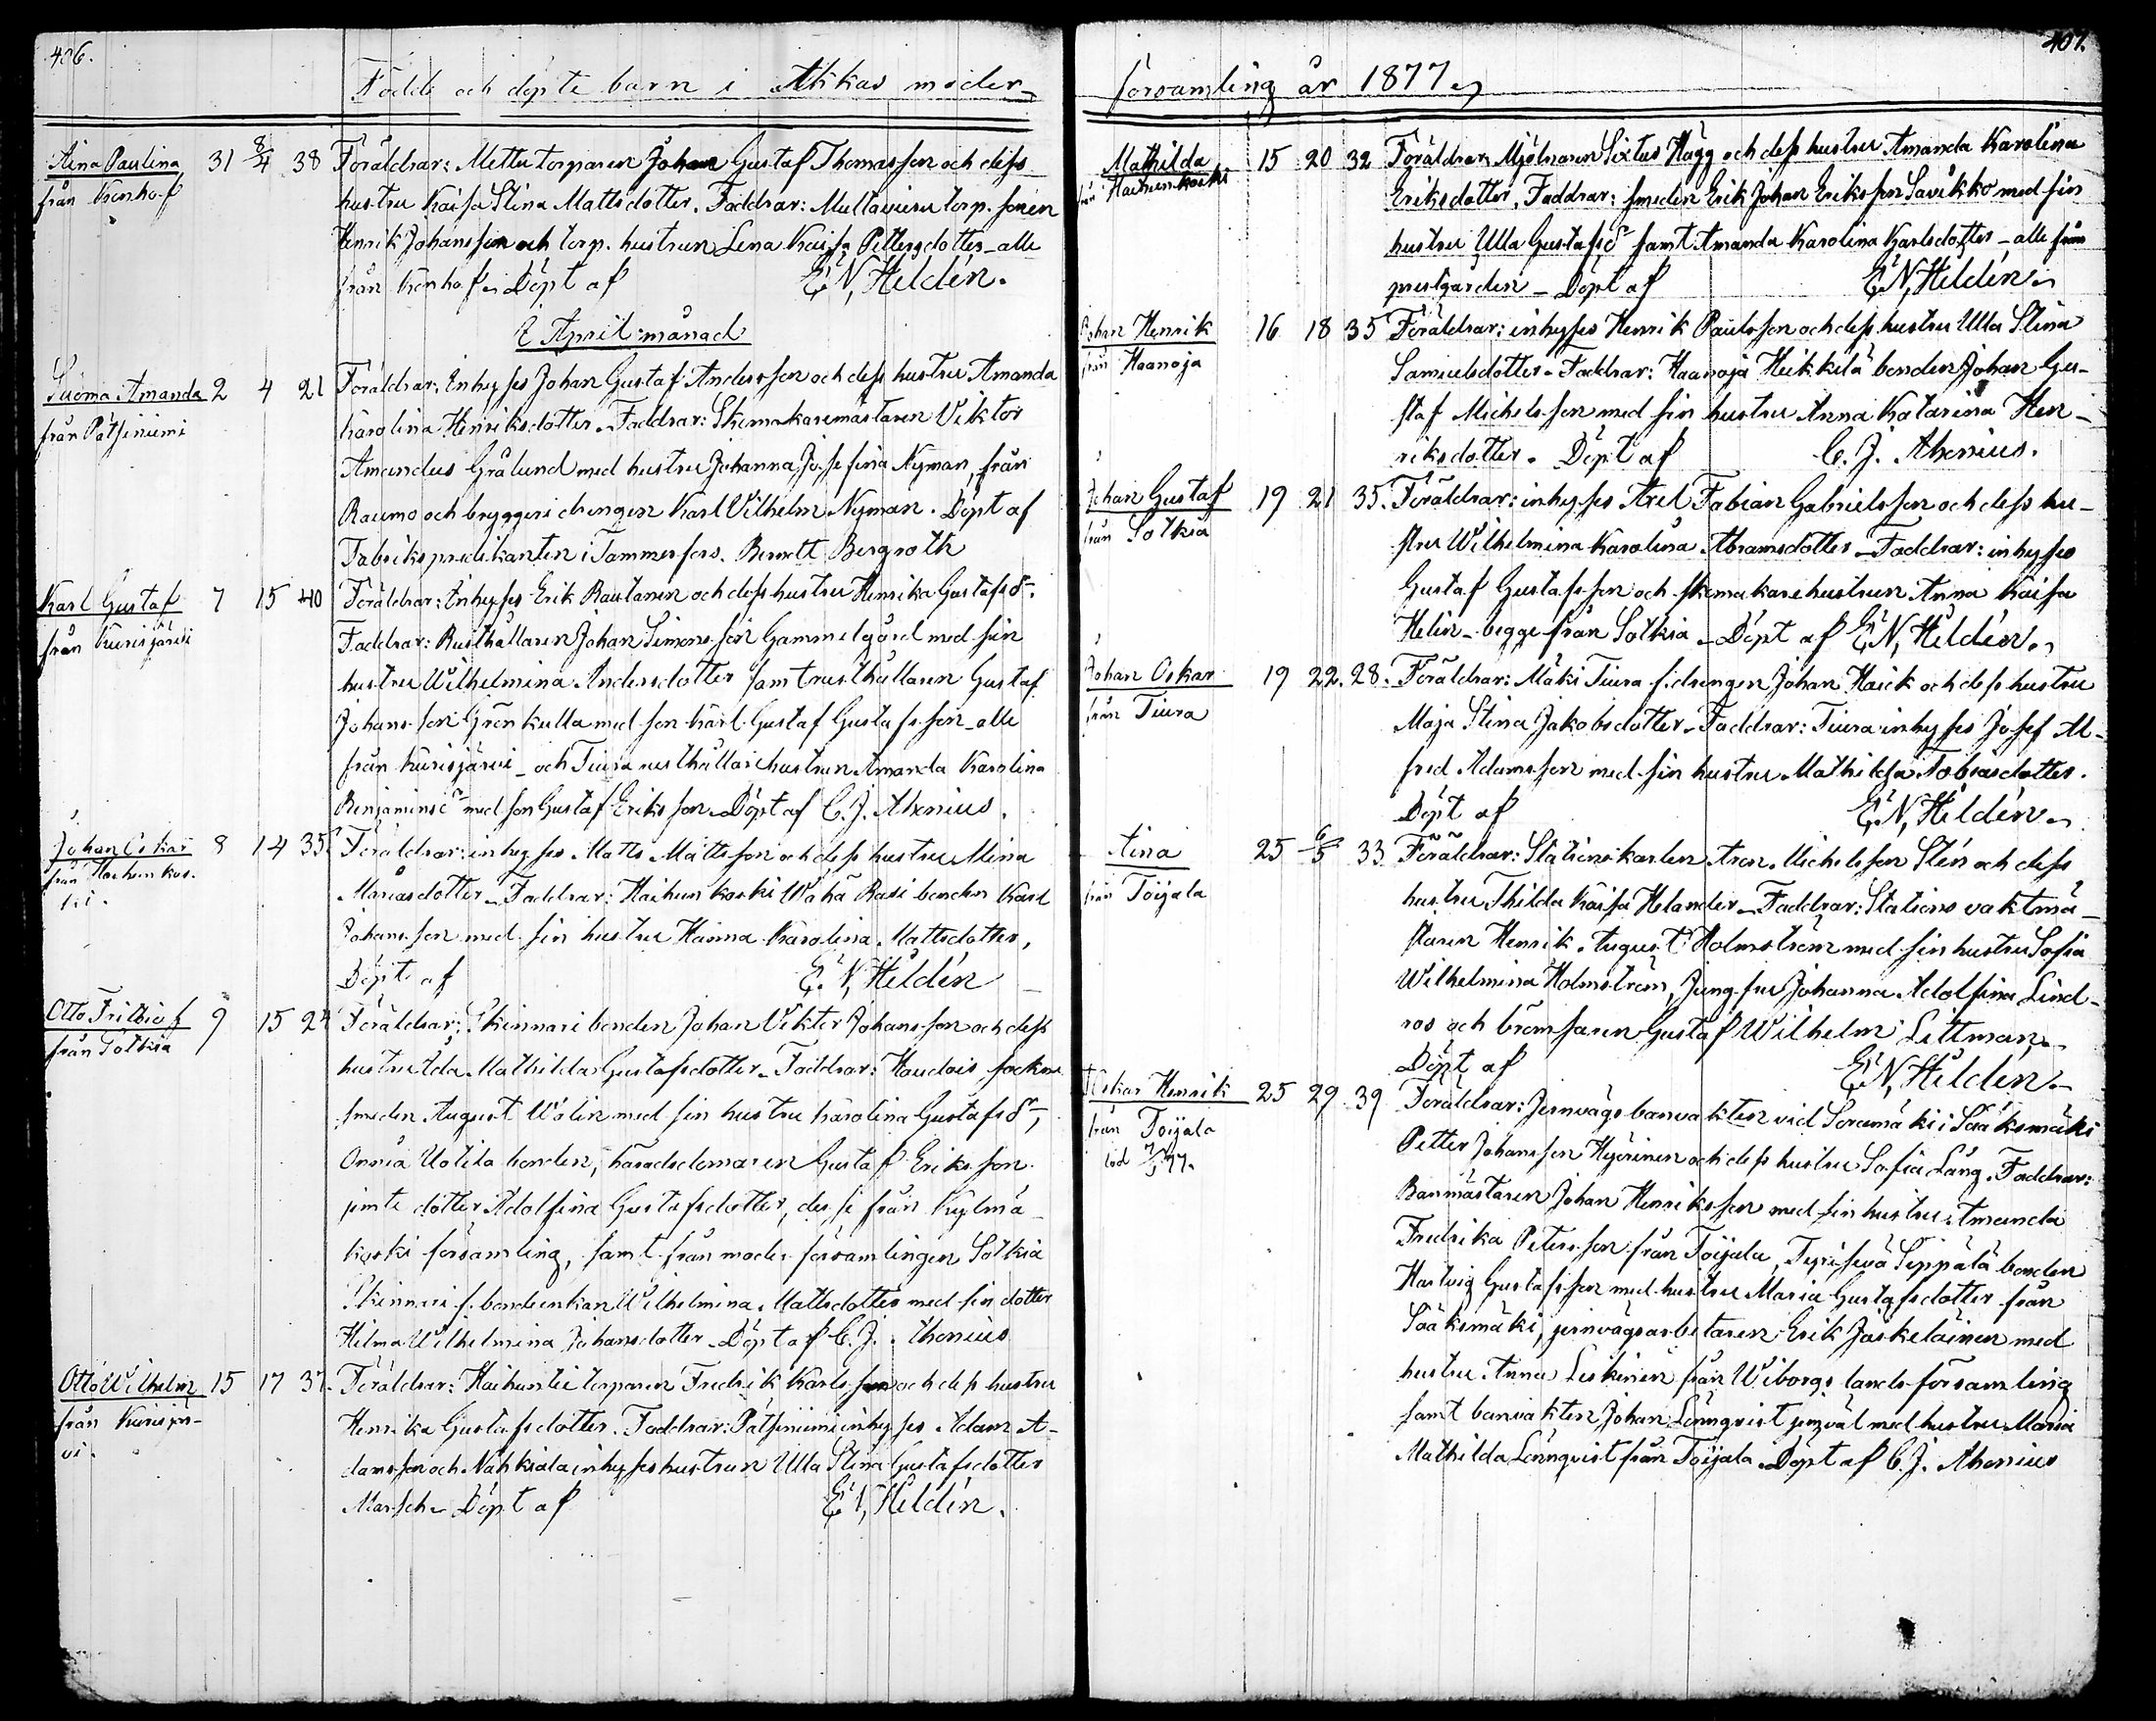 406.
Födde och döpte barn i Akkas moder-
Aina Paulina 31 8/4 38 Föräldrar: Mettu torparen Johan Gustaf Thomasson och dess
från Konhof hustru Kaisa Stina Mattsdotter. Faddrar: torp. sonen
Henrik Johansson och torp. hustrun Lena Kaisa Pettersdotter - alle
från Konhof. Döpt af E. N. Heldén.
I April månad
Suoma Amanda 2 4 21 Föräldrar: Inhyses Johan Gustaf Andersson och dess hustru Amanda
från Pätsiniemi Karolina Henriksdotter. Faddrar: Skomakaremästaren Viktor
Amandus Grålund med hustru Johanna Josefina Nyman, från
Raumo och bryggeri drengen Karl Vilhelm Nyman. Döpt af
Fabrikspredikanten i Tammerfors. Bergroth
Karl Gustaf 7 15 40 Föräldrar: Inhyses Erik Rautanen och dess hustru Henrika Gustafsdr.
från Kurisjärvi Faddrar: Rusthållaren Johan Simonsson Gammelgård med sin
hustru Wilhelmina Andersdotter samt rusthållaren Gustaf
Johansson Grönkulla med son Karl Gustaf Gustafsson - alle
från Kurisjärvi - och Tiura rusthållarehustrun Amanda Karolina
Benjaminsdr med son Gustaf Eriksson. Döpt af C. J. Ahenius.
Johan Oskar 8 14 35 Föräldrar: inhyses Matts Mattsson och dess hustru Mina
från Haihunkos- Mariasdotter. Faddrar: Haihunkoski Wähä Rasi bonden Karl
ki. Johansson med sin hustru Hanna Karolina Mattsdotter,
Döpt af E. N. Heldén
Otto Frithiof 9 15 24 Föräldrar: Skinnari bonden Johan Viktor Johansson och dess
från Sotkia hustru Ida Mathilda Gustafsdotter. Faddrar: socken
smeden August Wolin med sin hustru Karolina Gustafsdr,
Onnia Uotila bonden, häradsdomaren Gustaf Eriksson
jemte dotter Adolfina Gustafsdotter, desse från Kylmä-
koski församling, samt från moder församlingen Sotkia
Skinnari f. bondeenkan Wilhelmina Mattsdotter med sin dotter
Hilma Wilhelmina Johansdotter. Döpt af C. J. Ahenius
Otto Wilhelm 15 17 37. Föräldrar: Haihuntie torparen Fredrik Karlsson och dess hustru
från Kurisjär- Henrika Gustafsdotter. Faddrar: Pätsiniemi inhyses Adam A-
vi. damsson och Nahkiala inhyseshustrun Ulla Stina Gustafsdotter
Marsch. Döpt af E. N. Heldén.
407.
församling år 1877.
Mathilda 15 20 32 Föräldrar: Mjölnaren Sixtus Hägg och dess hustru Amanda Karolina
från Haihunkoski Eriksdotter. Faddrar: smeden Erik Johan Eriksson Savikko med sin
hustru Ulla Gustafsdr samt Amanda Karolina Karlsdotter - alle från
prestgården - Döpt af E. N. Heldén.
Johan Henrik 16 18 35 Föräldrar: inhyses Henrik Paulsson och dess hustru Ulla Stina
från Haanoja Samuelsdotter. Faddrar: Haanoja Heikkilä bonden Johan Gu-
staf Michelsson med sin hustru Anna Katarina Hen-
riksdotter. Döpt af C. J. Ahenius.
Johan Gustaf 19 21 35. Föräldrar: inhyses Axel Fabian Gabrielsson och dess hu-
från Sotkia stru Wilhelmina Karolina Abramsdotter. Faddrar: inhyses
Gustaf Gustafsson och skomakarehustrun Anna Kaisa
Helin - begge från Sotkia. Döpt af E. N. Heldén.
Johan Oskar 19 22. 28. Föräldrar: Mäki Tiura f.drengen Johan Haick och dess hustru
från Tiura Maja Stina Jakobsdotter. Faddrar: Tiura inhyses Josef Al-
fred Adamsson med sin hustru Mathilda Tobiasdotter.
Döpt af E. N. Heldén.
Aina 25 6/5 33 Föräldrar: Stationskarlen Aron Michelsson Stén och dess
från Toijala hustru Thilda Kaisa Helander. Faddrar: Stations vaktmä-
staren Henrik August Holmström med sin hustru Sofia
Wilhelmina Holmström, Jungfru Johanna Adolfina Lind-
ros och bromsaren Gustaf Wilhelm Littman.
Döpt af E. N. Heldén.
Oskar Henrik 25 29 39 Föräldrar: Jernvägs banvakten vid Soramäki i Sääksmäki
från Toijala Petter Johansson Hyörinen och dess hustru Sofia Lång. Faddrar:
död 7/5 77. Banmästaren Johan Henriksson med sin hustru Amanda
Fredrika Petersson från Toijala, Seppälä bonden
Hartvig Gustafsson med hustru Maria Gustafsdotter från
Sääksmäki, jernvägsarbetaren Erik Jäskeläinen med
hustru Anna Leskinen från Wiborgs landsförsamling
samt banvakten Johan Lönnqvist jemväl med hustru Maria
Mathilda Lönnqvist från Toijala. Döpt af C. J. Ahenius